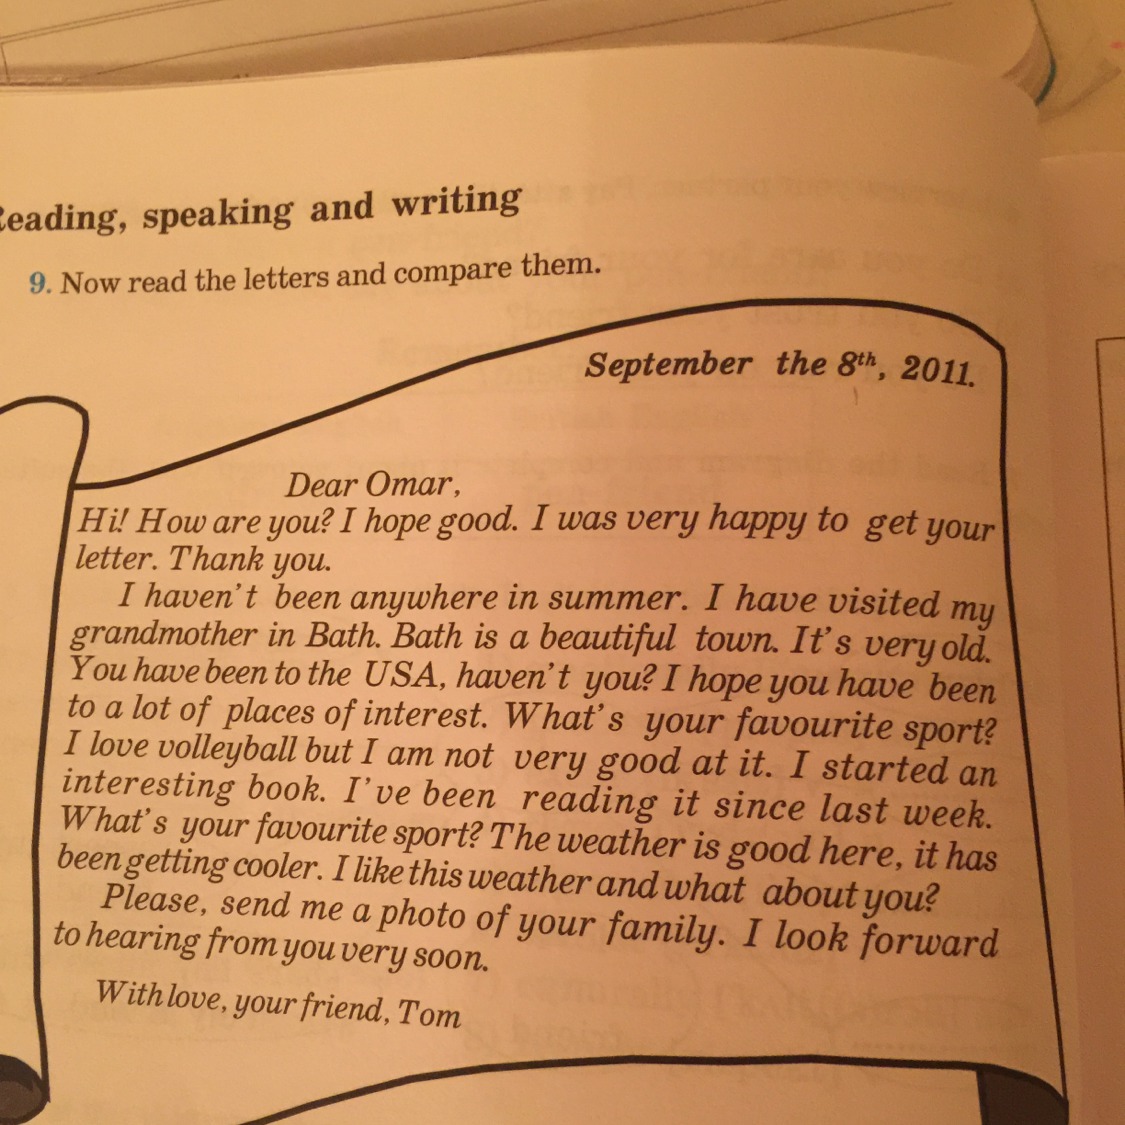 Reading, speaking and writing
9. Now read the letters and compare them.
September the 8th, 2011.
Dear Omar,
Hi! How are you? I hope good. I was very happy to get your
letter. Thank you.
I haven't been anywhere in summer. I have visited my
grandmother in Bath. Bath is a beautiful town. It's very old.
You have been to the USA, haven't you? I hope you have been
to a lot of places of interest. What's your favourite sport?
I love volleyball but I am not very good at it. I started an
interesting book. I've been reading it since last week.
What's your favourite sport? The weather is good here, it has
been getting cooler. I like this weather and what about you?
Please, send me a photo of your family. I look forward
to hearing from you very soon.
With love, your friend, Tom